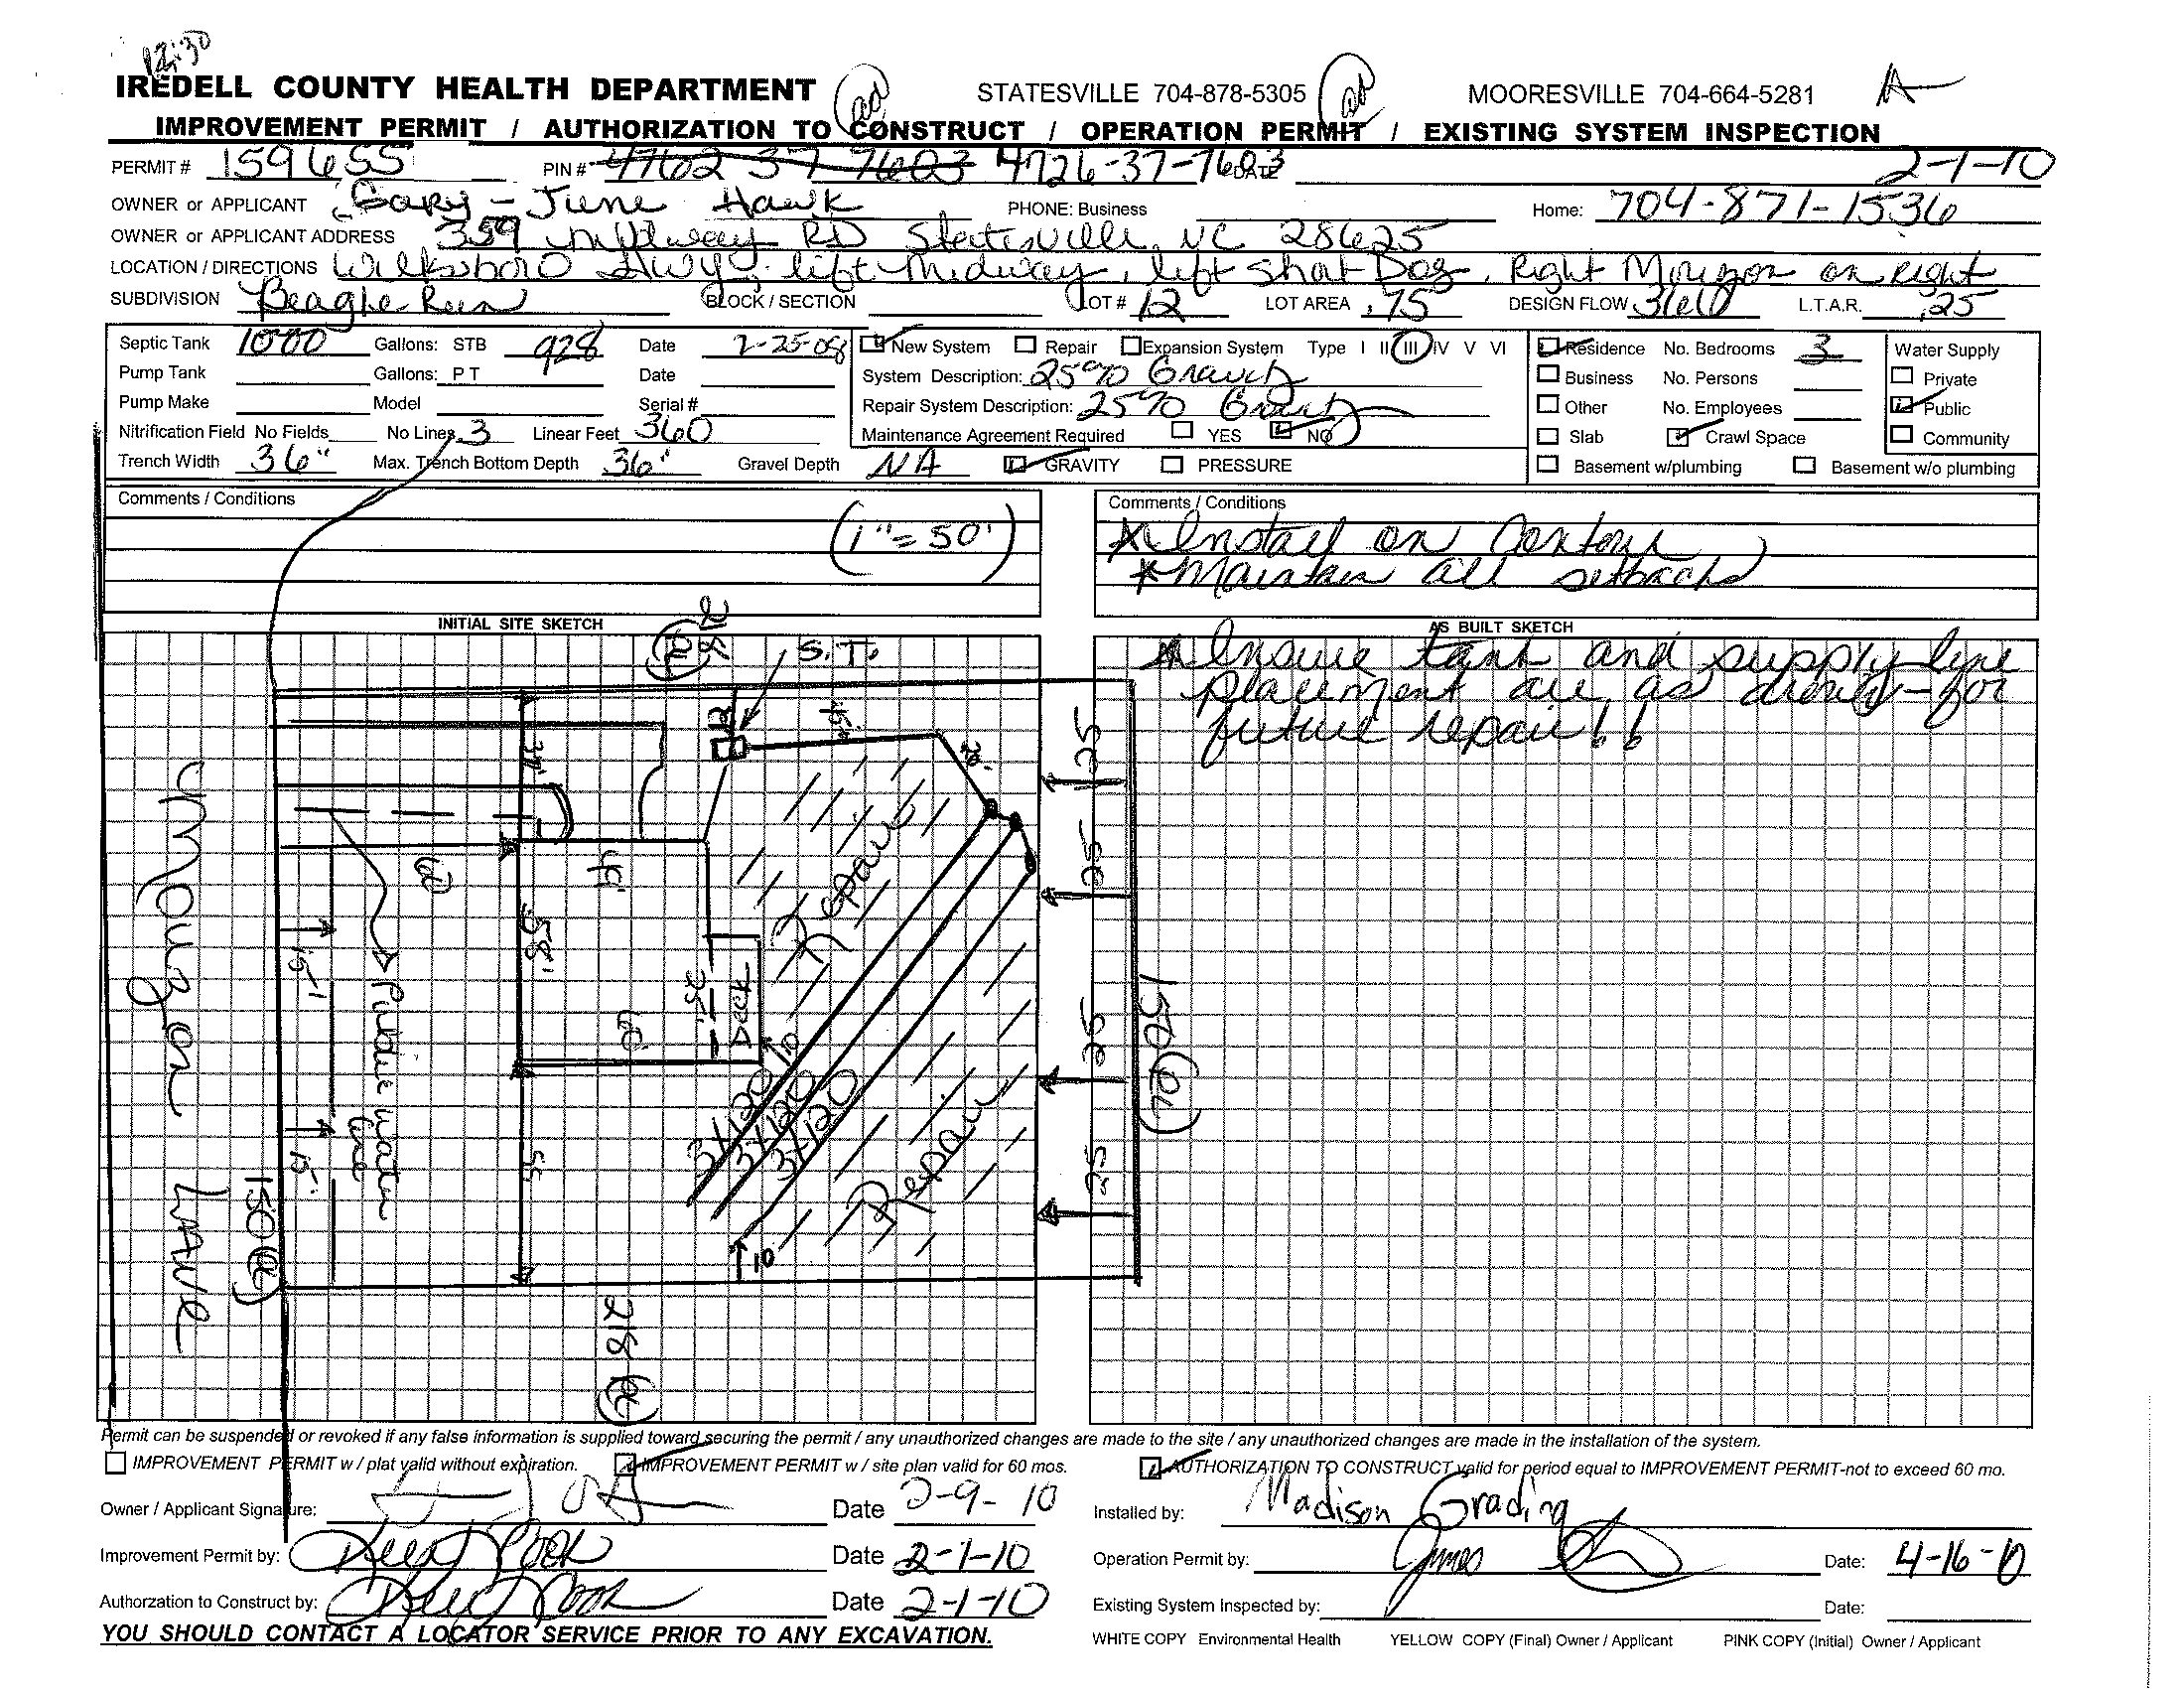 12:30
IREDELL COUNTY HEALTH DEPARTMENT STATESVILLE 704-878-5305 MOORESVILLE 704-664-5281
IMPROVEMENT PERMIT / AUTHORIZATION TO CONSTRUCT / OPERATION PERMIT / EXISTING SYSTEM INSPECTION
PERMIT # 159655 PIN # 4762 37 7603 4726-37-7603 DATE 2-1-10
OWNER or APPLICANT Gary - June Hawk PHONE: Business Home: 704-871-1536
OWNER or APPLICANT ADDRESS 359 Midway RD Statesville, NC 28625
LOCATION / DIRECTIONS Wilksboro HWY, left Midway, left Shot Dog, Right Mourgon on right
SUBDIVISION Beagle Run BLOCK / SECTION LOT # 12 LOT AREA .75 DESIGN FLOW 360 L.T.A.R. .25
Septic Tank 1000 Gallons: STB 928 Date 2-25-08 New System Repair Expansion System Type I II III IV V VI Residence No. Bedrooms 3 Water Supply
Pump Tank Gallons: P T Date System Description: 25% Gravity Business No. Persons Private
Pump Make Model Serial # Repair System Description: 25% Gravity Other No. Employees Public
Nitrification Field No Fields No Lines 3 Linear Feet 360 Maintenance Agreement Required YES NO Slab Crawl Space Community
Trench Width 36" Max. Trench Bottom Depth 36" Gravel Depth NA GRAVITY PRESSURE Basement w/plumbing Basement w/o plumbing
Comments / Conditions
(1"=50')
Comments / Conditions
* Install on Contour
* Maintain all setbacks
INITIAL SITE SKETCH
AS BUILT SKETCH
* Insure tank and supply line
placement are as drawn - for
future repair!!
218 (PL)
S.T.
12
45'
20'
37'
60
49'
58'
25'
Deck
60'
10
55
3x120
3x120
3x120
Repair
Repair
10
25
25
25
25
150 (PL)
15'
15'
Public water
line
Mourgon Lane
150 (PL)
218 (PL)
Permit can be suspended or revoked if any false information is supplied toward securing the permit / any unauthorized changes are made to the site / any unauthorized changes are made in the installation of the system.
IMPROVEMENT PERMIT w / plat valid without expiration. IMPROVEMENT PERMIT w / site plan valid for 60 mos. AUTHORIZATION TO CONSTRUCT valid for period equal to IMPROVEMENT PERMIT-not to exceed 60 mo.
Owner / Applicant Signature: Date 2-9-10 Installed by: Madison Grading
Improvement Permit by: Date 2-1-10 Operation Permit by: James Date: 4-16-10
Authorzation to Construct by: Date 2-1-10 Existing System Inspected by: Date:
YOU SHOULD CONTACT A LOCATOR SERVICE PRIOR TO ANY EXCAVATION. WHITE COPY Environmental Health YELLOW COPY (Final) Owner / Applicant PINK COPY (Initial) Owner / Applicant